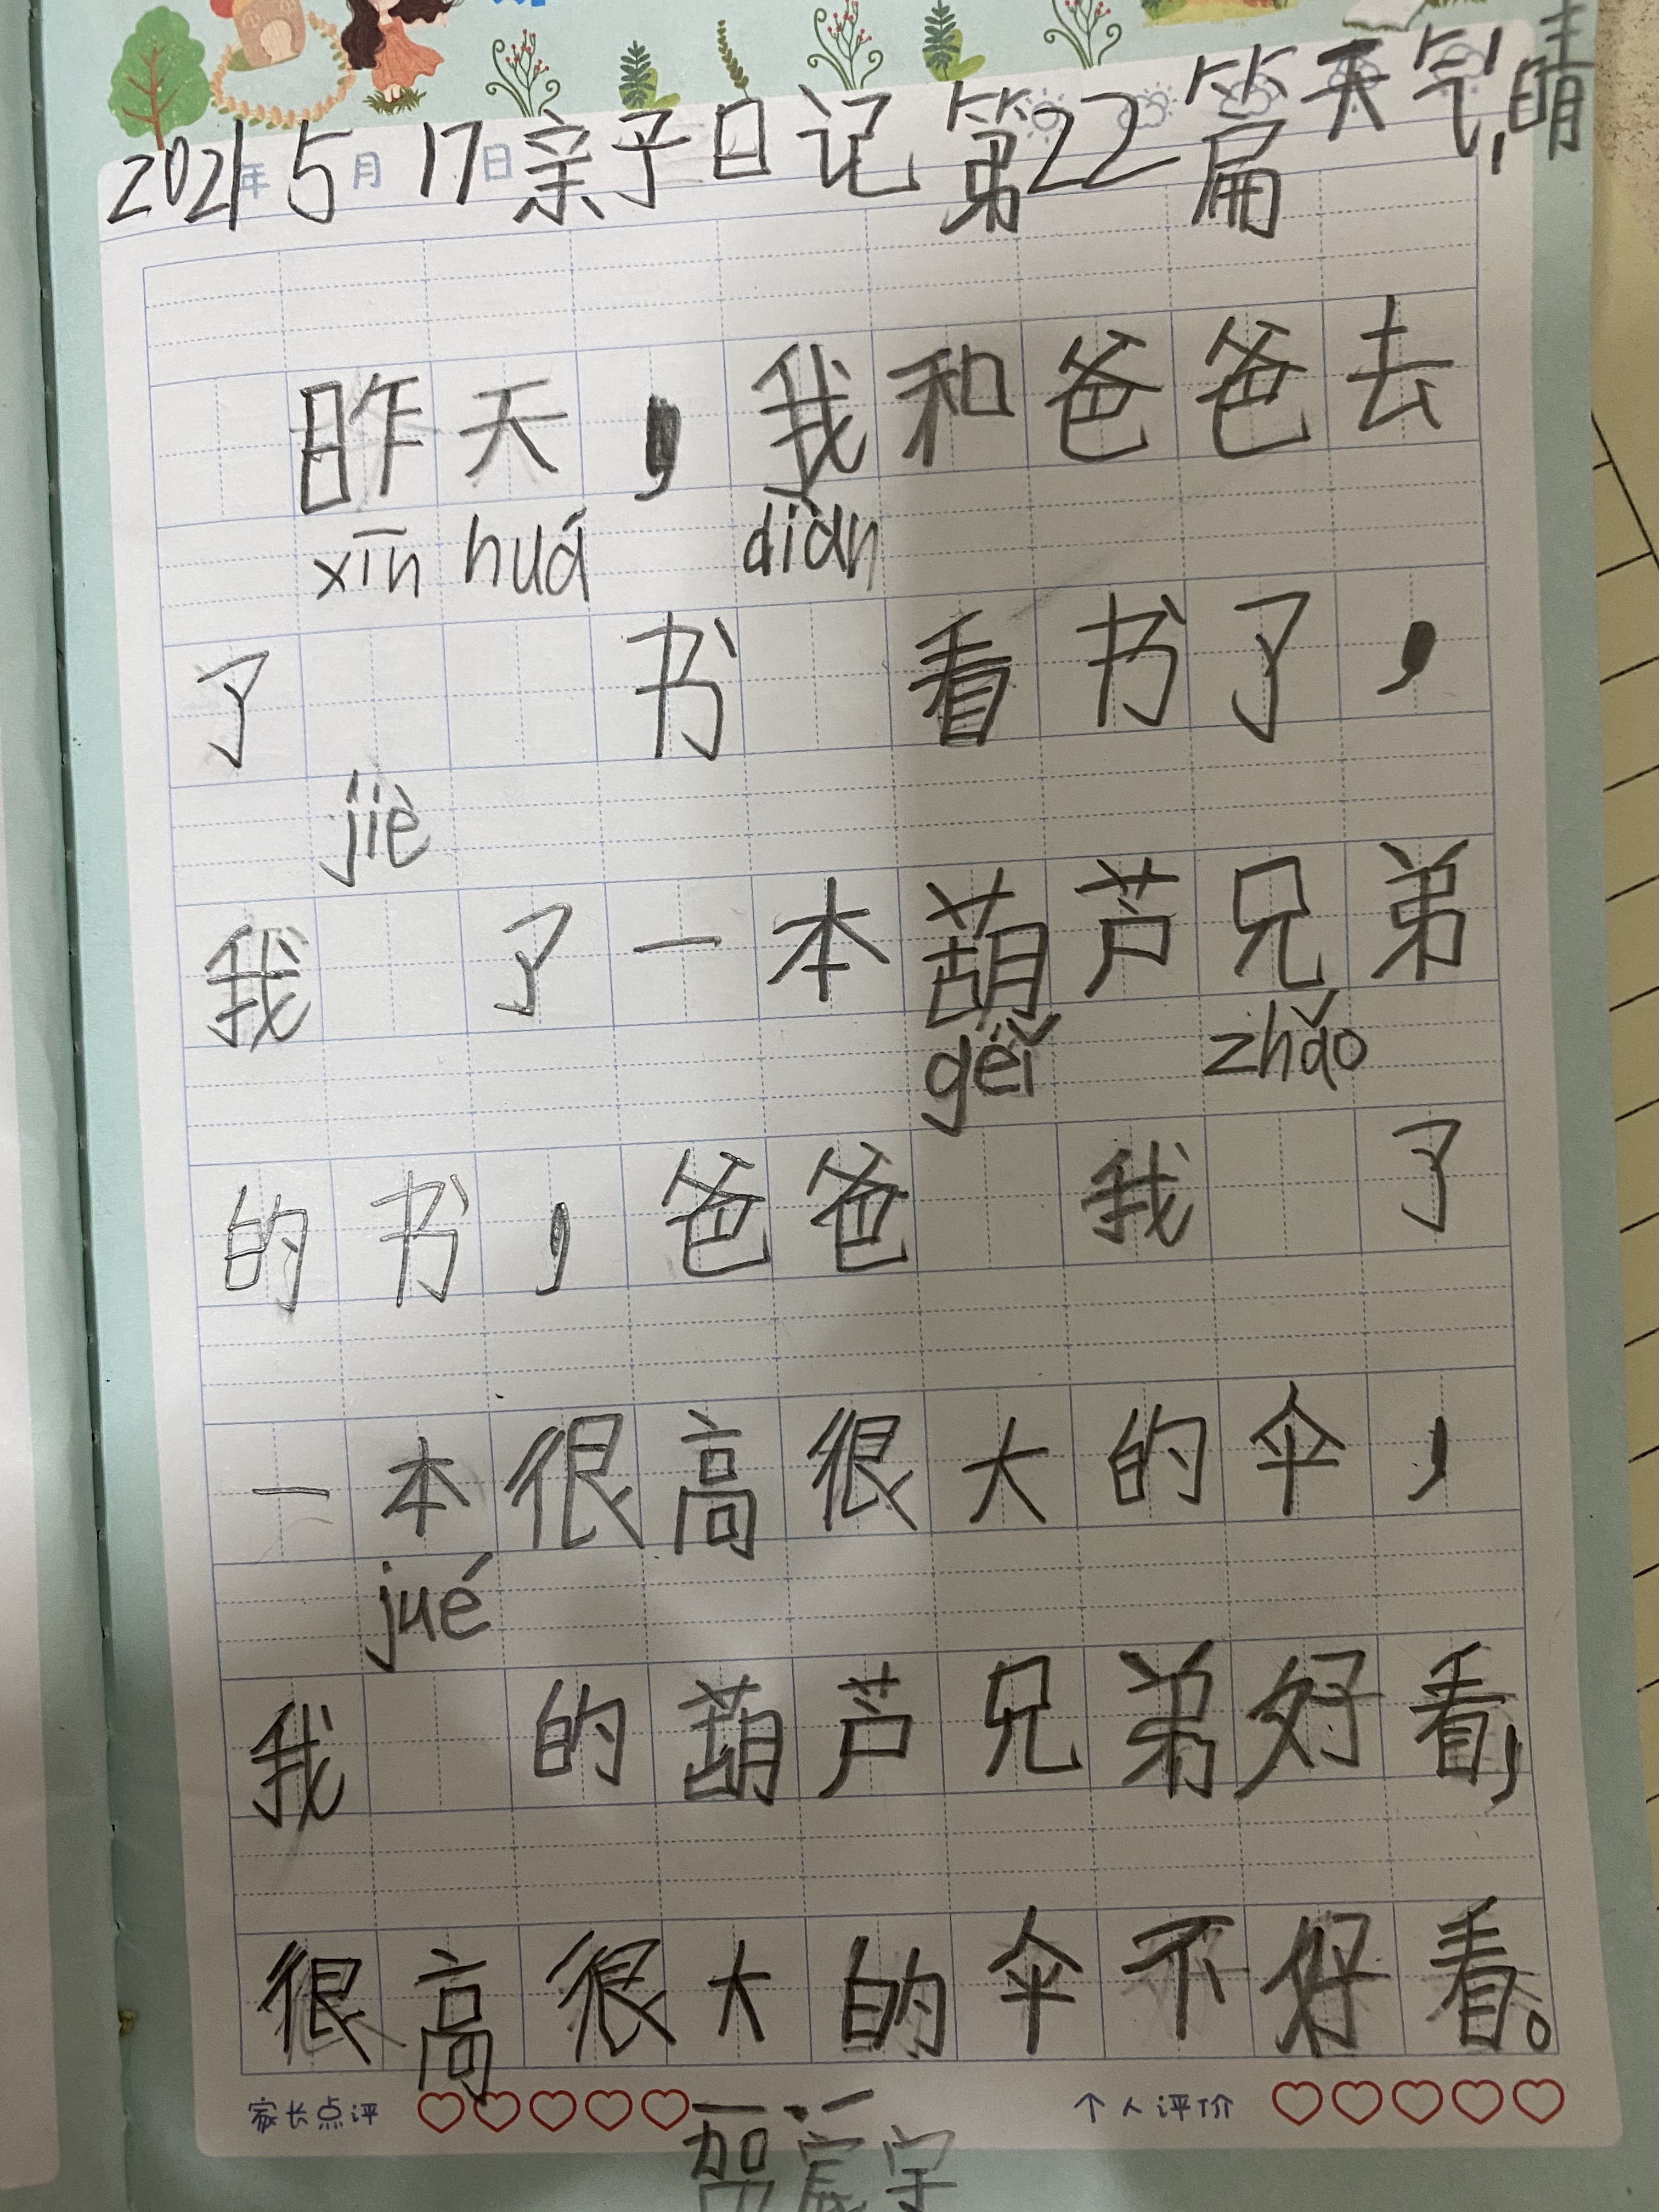 2021年5月17日亲子日记第22篇天气,晴
昨天,我和爸爸去
xīn huá diàn
了 书 看书了,
jiè
我 了一本葫芦兄弟
gěi zhǎo
的书,爸爸 我 了
一本很高很大的伞,
jué
我 的葫芦兄弟好看,
很高很大的伞不好看。
家长点评 个人评价
宸宇